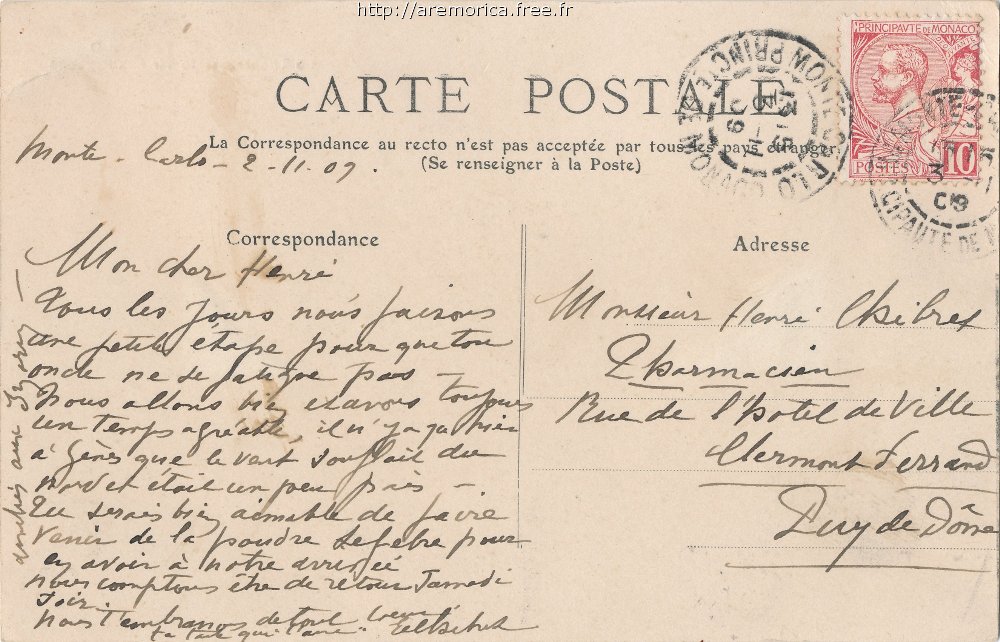 http://aremorica.free.fr
CARTE POSTALE
La Correspondance au recto n'est pas acceptée par tous les pays étrangers
(Se renseigner à la Poste)
PRINCIPAUTÉ DE MONACO
POSTES 10
MONTE-CARLO
PRINCIPAUTÉ DE MONACO
Monte-Carlo 2-11.09.
Correspondance
Mon cher Henri
Tous les jours nous faisons
une petite étape pour que ton
oncle ne se fatigue pas -
Nous allons bien et avons toujours
un temps agréable, il n'y a qu'hier
à Gênes que le vent soufflait du
nord et était un peu frais -
Tu serais bien aimable de faire
venir de la poudre Lefebre pour
en avoir à notre arrivée
nous comptons être de retour Samedi
soir
Nous t'embrassons de tout coeur
ta tante qui t'aime
Adresse
Monsieur Henri
Pharmacien
Rue de l'hotel de Ville
Clermont Ferrand
Puy de Dôme